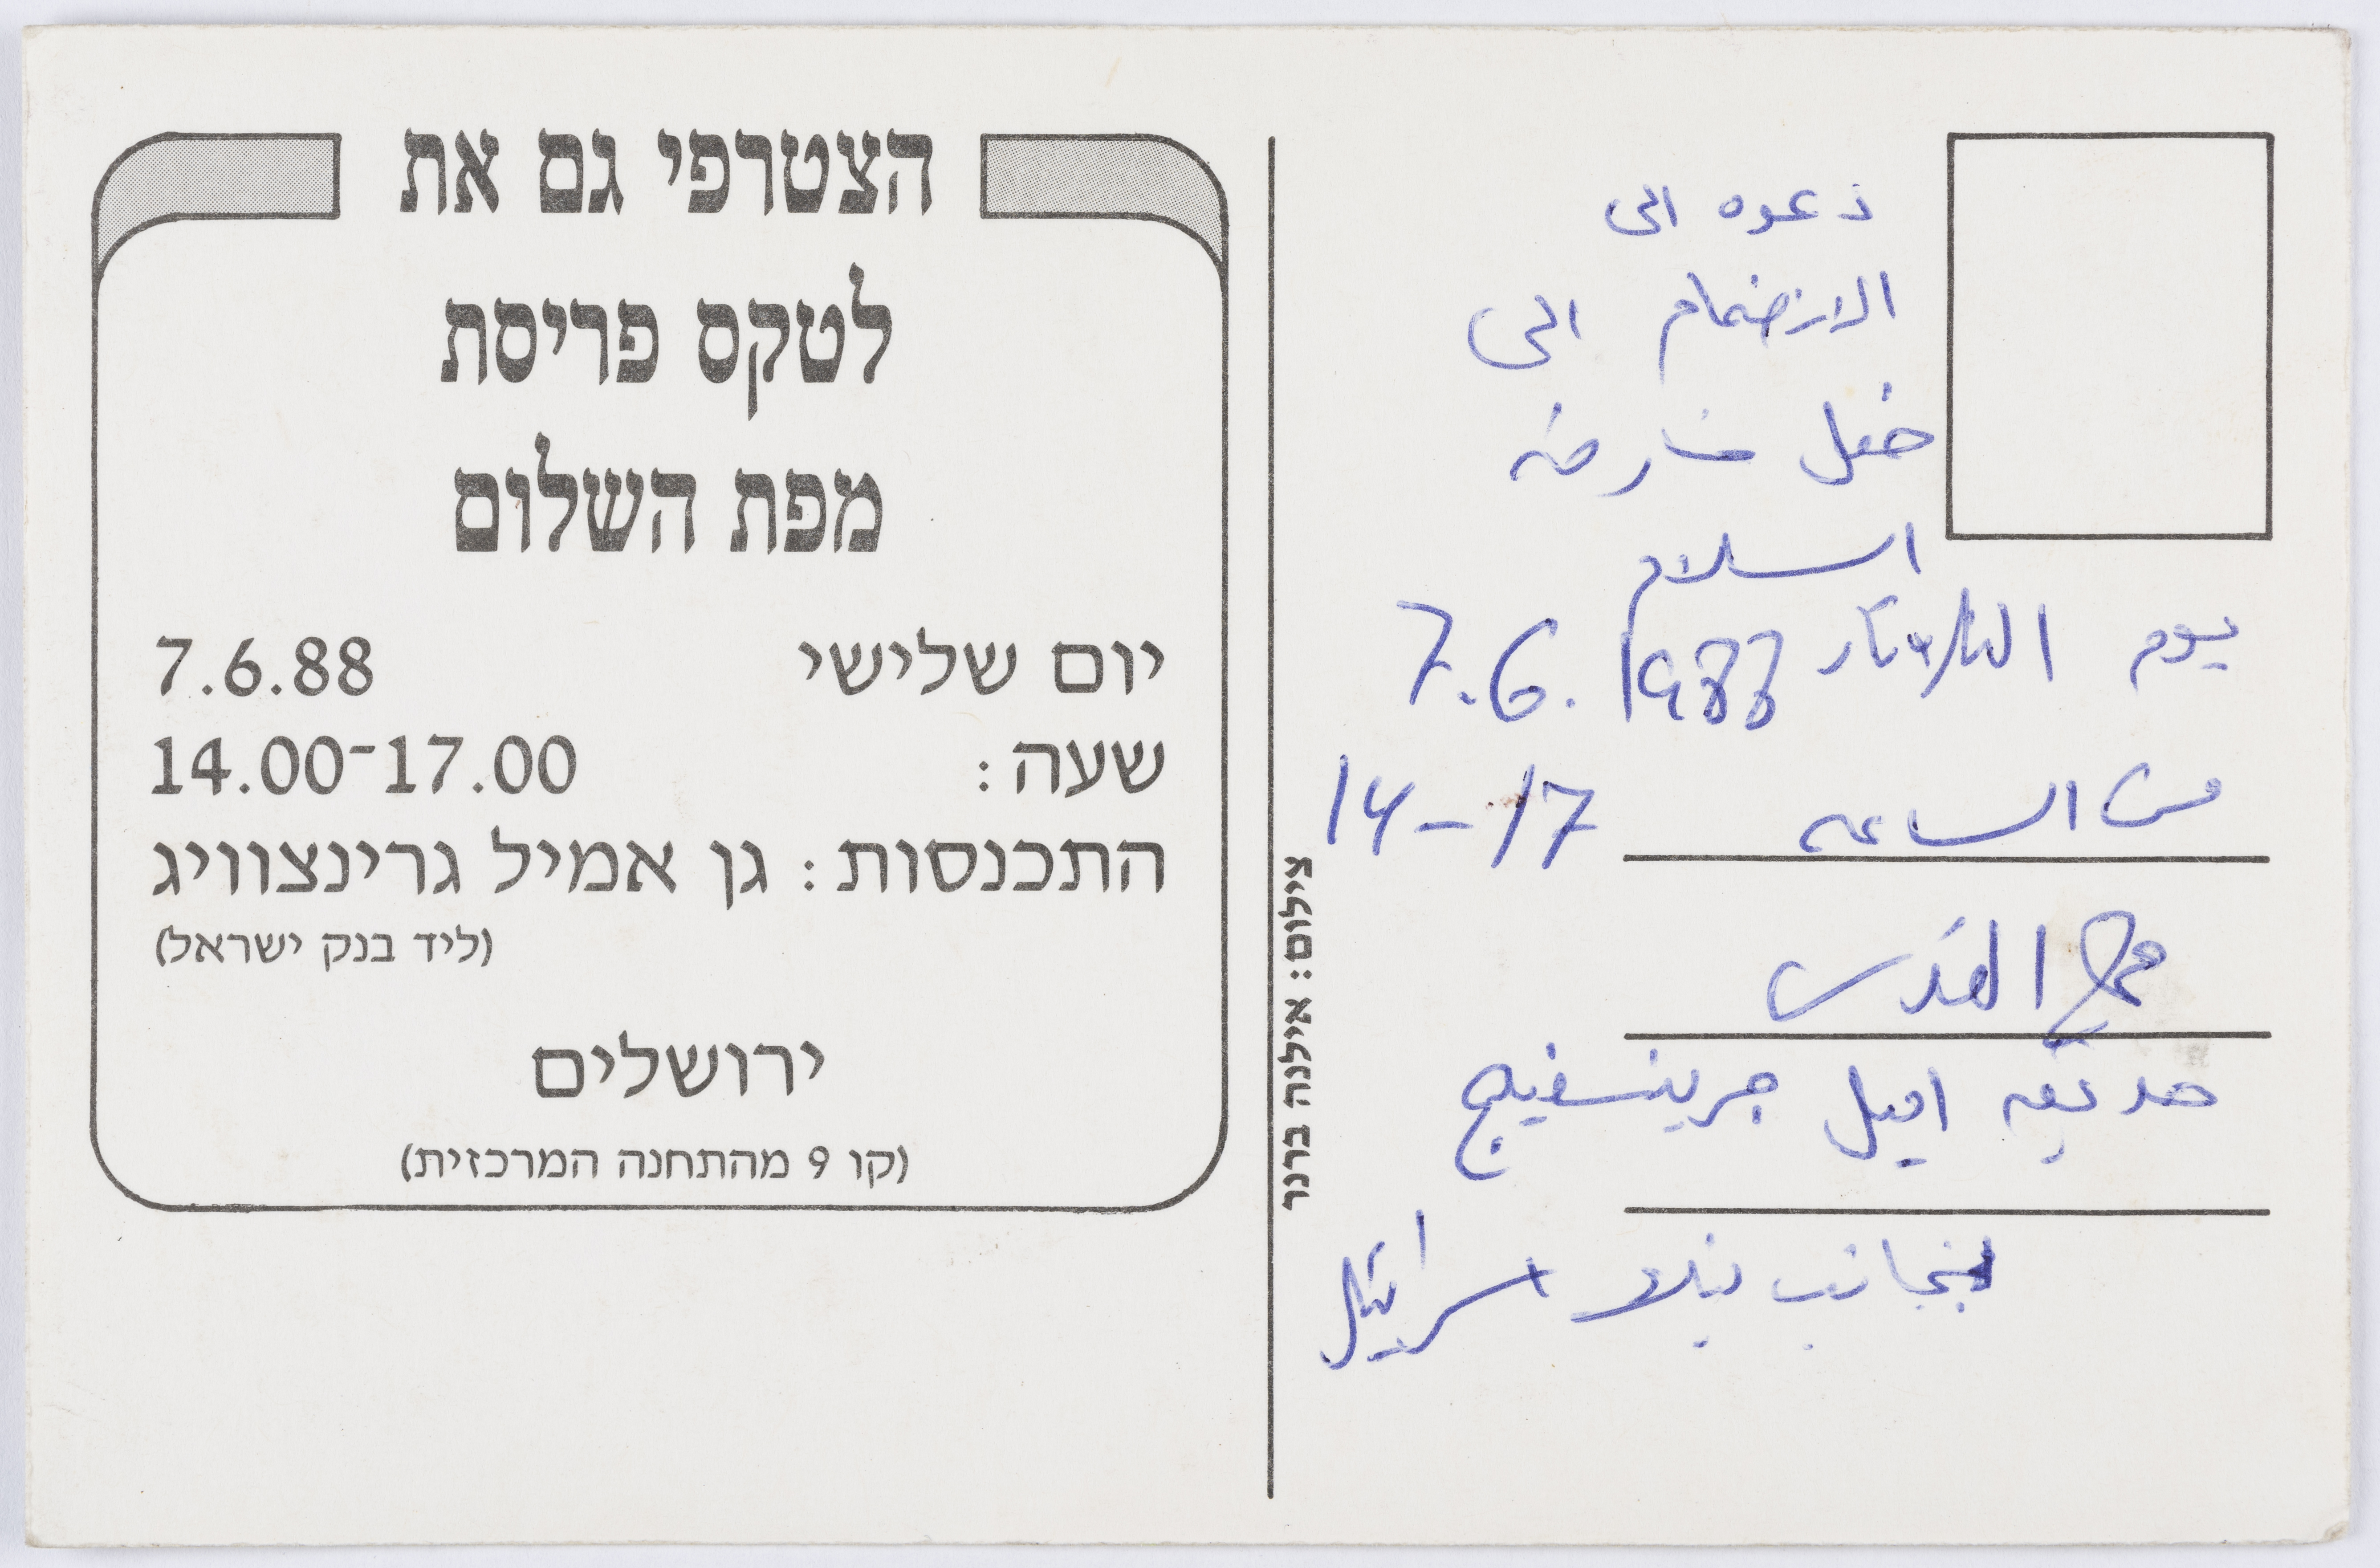 הצטרפי גם את
לטקס פריסת
מפת השלום
יום שלישי 7.6.88
שעה: 14.00-17.00
התכנסות: גן אמיל גרינצוויג
(ליד בנק ישראל)
ירושלים
(קו 9 מהתחנה המרכזית)
צילום: אילנה ברנר
دعوه الى
الانضمام الى
حفل
السلام
يوم الثلاثاء 7.6.1988
من الساعه 14-17
القدس
حديقه اميل جرينسفيج
بجانب بنك اسرائيل